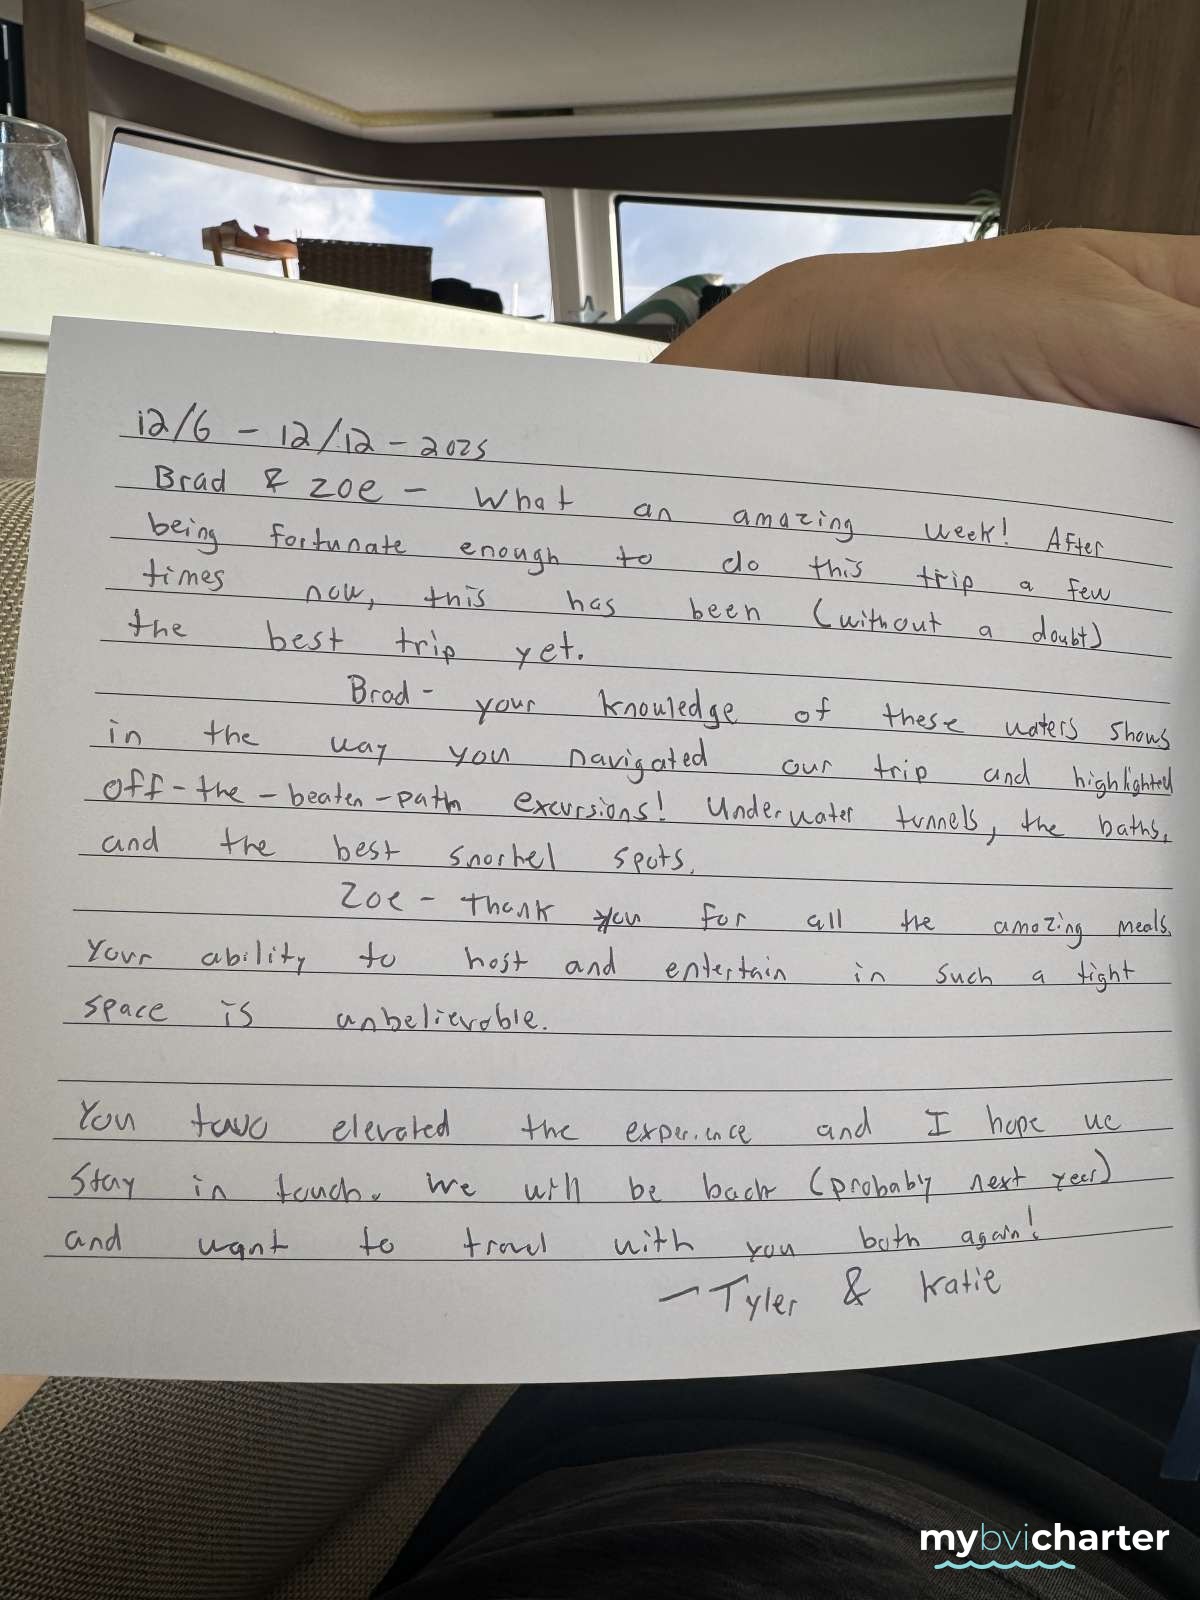 12/6 - 12/12 - 2025
Brad & Zoe - What an amazing week! After
being fortunate enough to do this trip a few
times now, this has been (without a doubt)
the best trip yet.
Brad - your knowledge of these waters shows
in the way you navigated our trip and highlighted
off-the-beaten-path excursions! Underwater tunnels, the baths,
and the best snorkel spots.
Zoe - thank you for all the amazing meals.
Your ability to host and entertain in such a tight
space is unbelievable.
You two elevated the experience and I hope we
stay in touch. We will be back (probably next year)
and want to travel with you both again!
- Tyler & Katie
mybvicharter